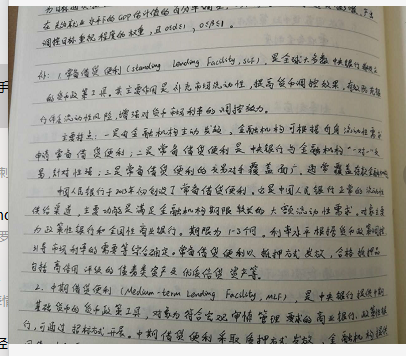 在充分就业水平下的GDP估计值的
调控目标重视程度的权重，且0≤α≤1，0≤β≤1。
补：1.常备借贷便利（Standing Lending Facility, SLF），是全球大多数中央银行都设立
的货币政策工具。其主要作用是补充市场流动性，提高货币调控效果，有效防范银
行体系流动性风险，增强对货币市场利率的调控效力。
主要特点：一是由金融机构主动发起，金融机构可根据自身流动性需求
申请常备借贷便利；二是常备借贷便利是中央银行与金融机构“一对一”交
易，针对性强；三是常备借贷便利的交易对手覆盖面广，通常覆盖存款金融机构
中国人民银行于2013年初创设了常备借贷便利。这是中国人民银行正常的流动性
供给渠道，主要功能是满足金融机构期限较长的大额流动性需求，对象主要
为政策性银行和全国性商业银行。期限为1-3个月。利率水平根据货币政策调控
引导市场利率的需要等综合确定。常备借贷便利以抵押方式发放，合格抵押品
包括高信用评级的债券类资产及优质信贷资产等。
2.中期借贷便利（Medium-term Lending Facility, MLF），是中央银行提供中期
基础货币的货币政策工具，对象为符合宏观审慎管理要求的商业银行、政策性银
行，可通过招标方式开展。中期借贷便利采取质押方式发放，金融机构提供